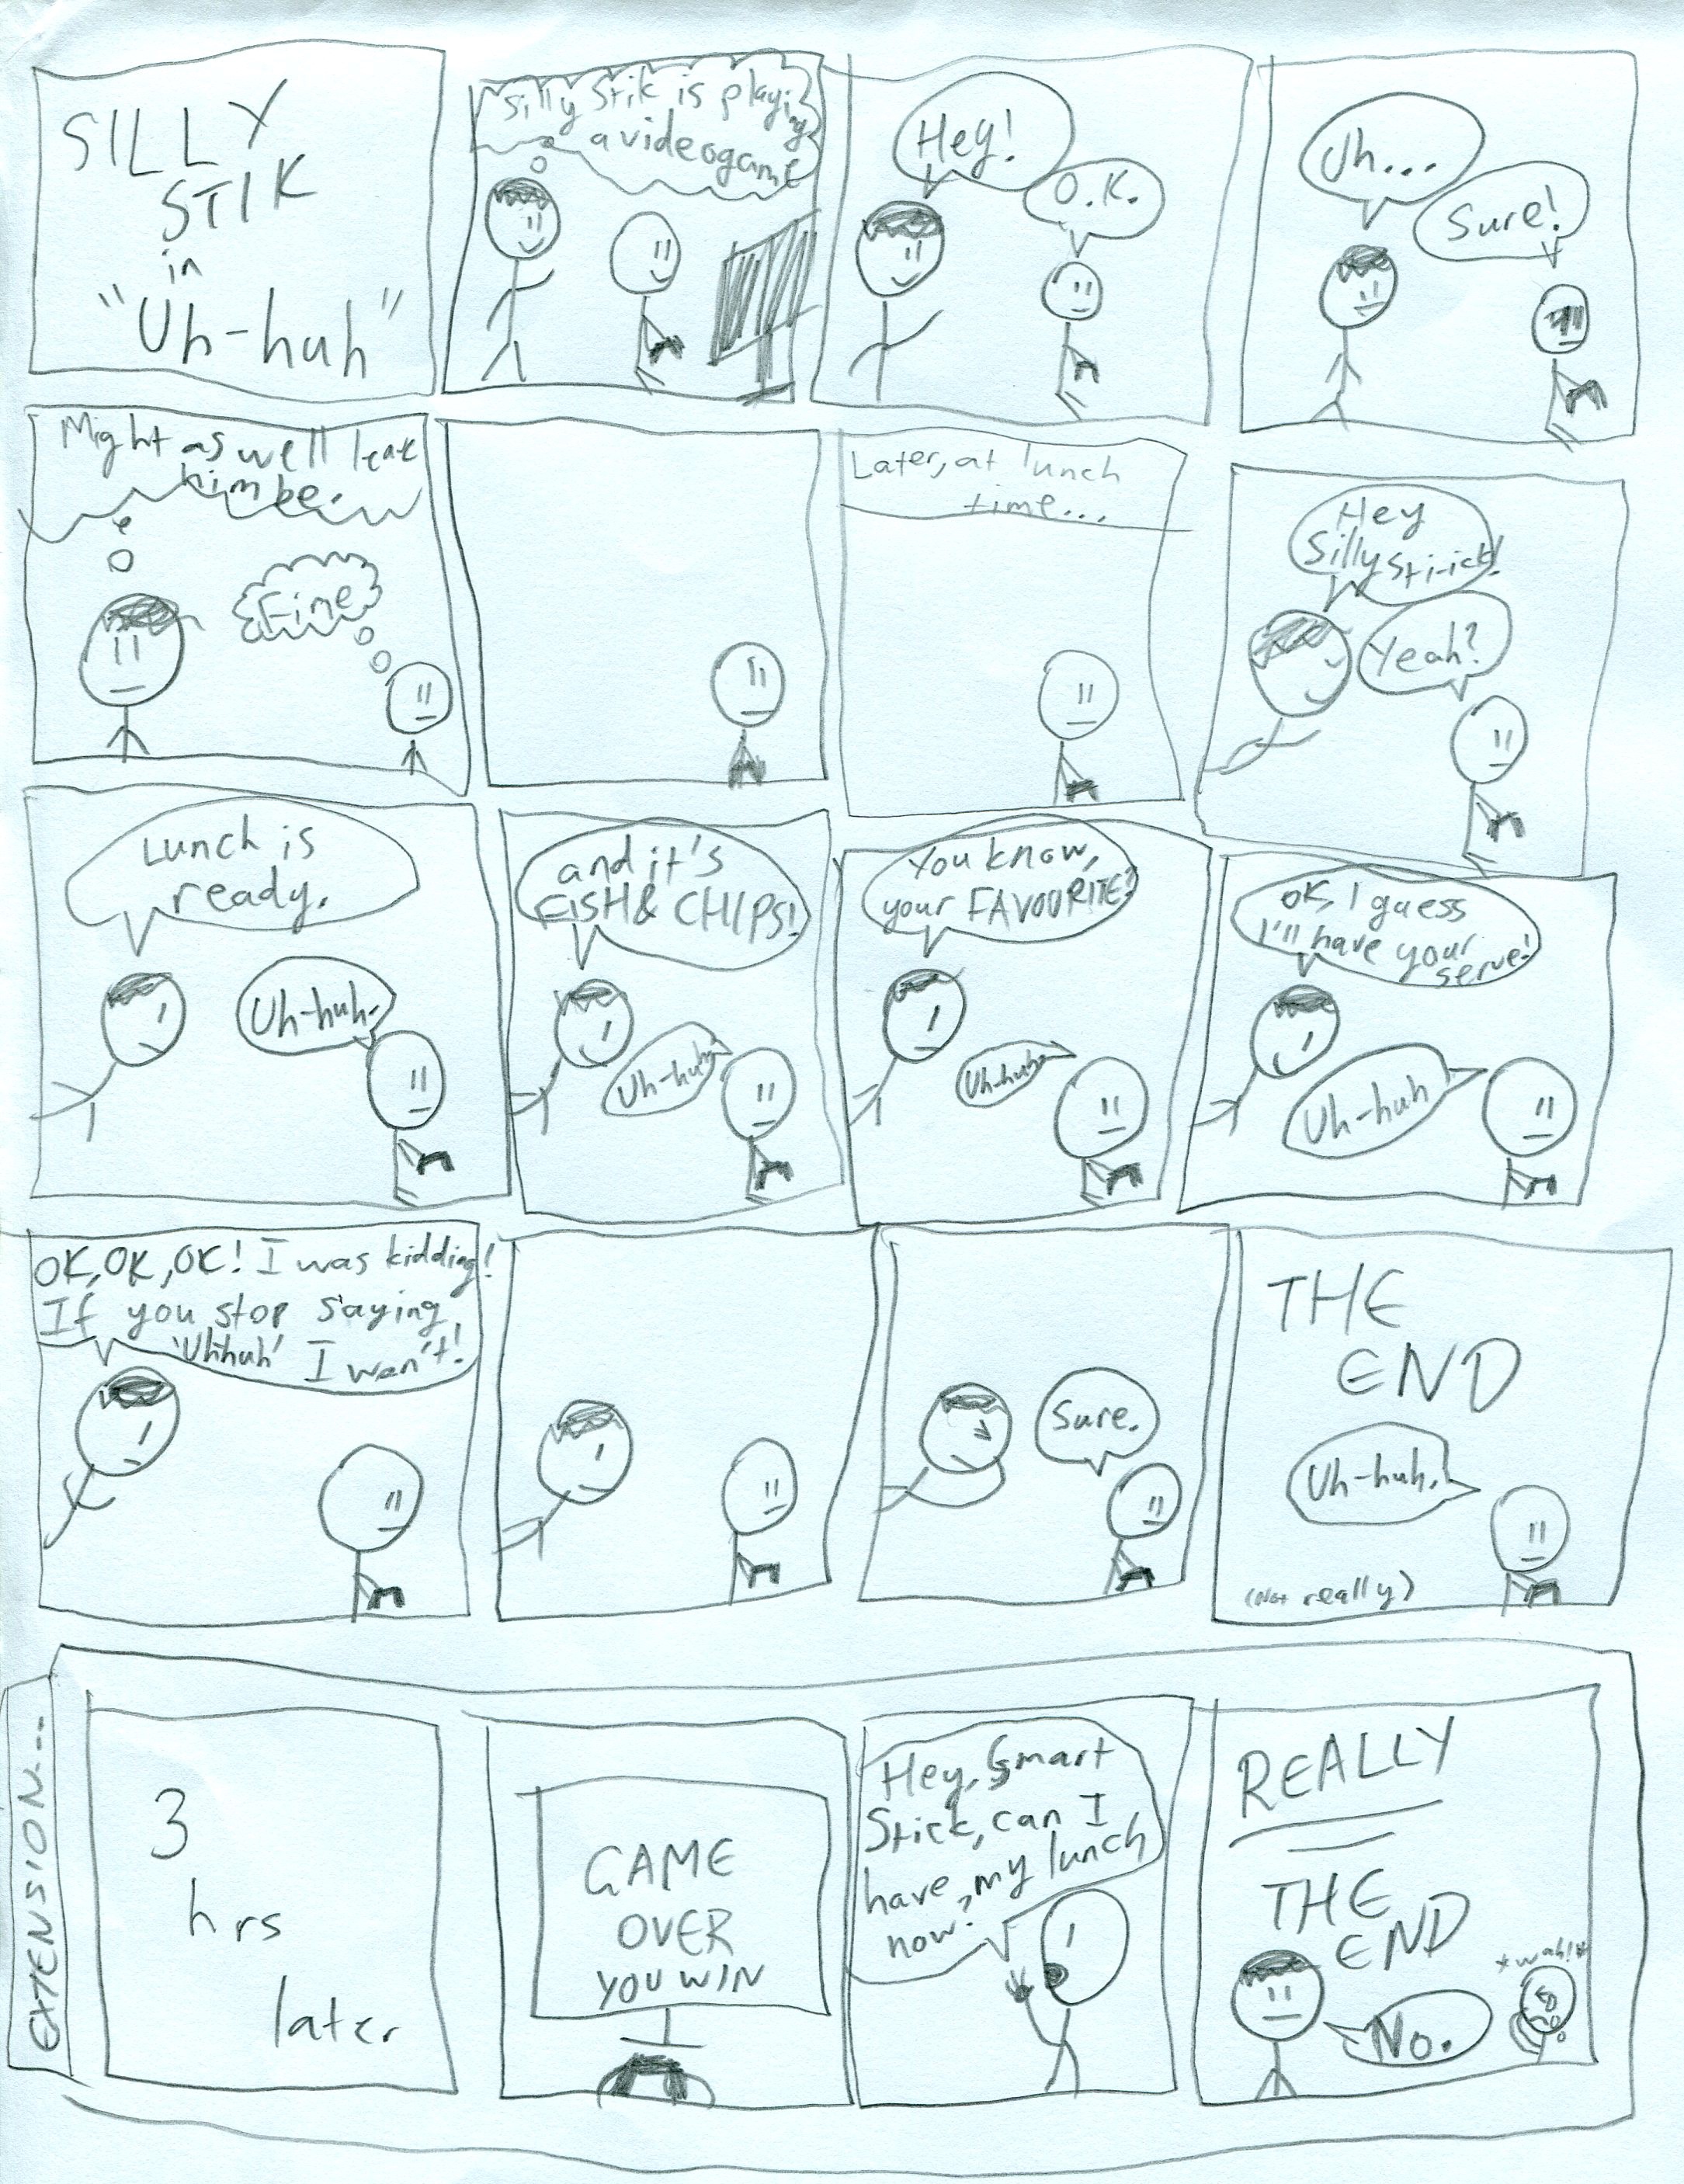 SILLY
STIK
in
"Uh-huh"
Silly Stik is playing
a videogame
Hey!
O.K.
Uh...
Sure!
Might as well leave
him be.
Fine
Later, at lunch
time...
Hey
Silly Sti-ick!
Yeah?
Lunch is
ready.
Uh-huh.
and it's
FISH & CHIPS!
Uh-huh
You know,
your FAVOURITE?
Uh-huh
OK, I guess
I'll have your
serve!
Uh-huh
OK, OK, OK! I was kidding!
If you stop saying
'Uhhuh' I won't!
Sure.
THE
END
Uh-huh.
(Not really)
EXTENSION...
3
hrs
later
GAME
OVER
YOU WIN
Hey, Smart
Stick, can I
have my lunch
now?
REALLY
THE
END
*wah!*
No.